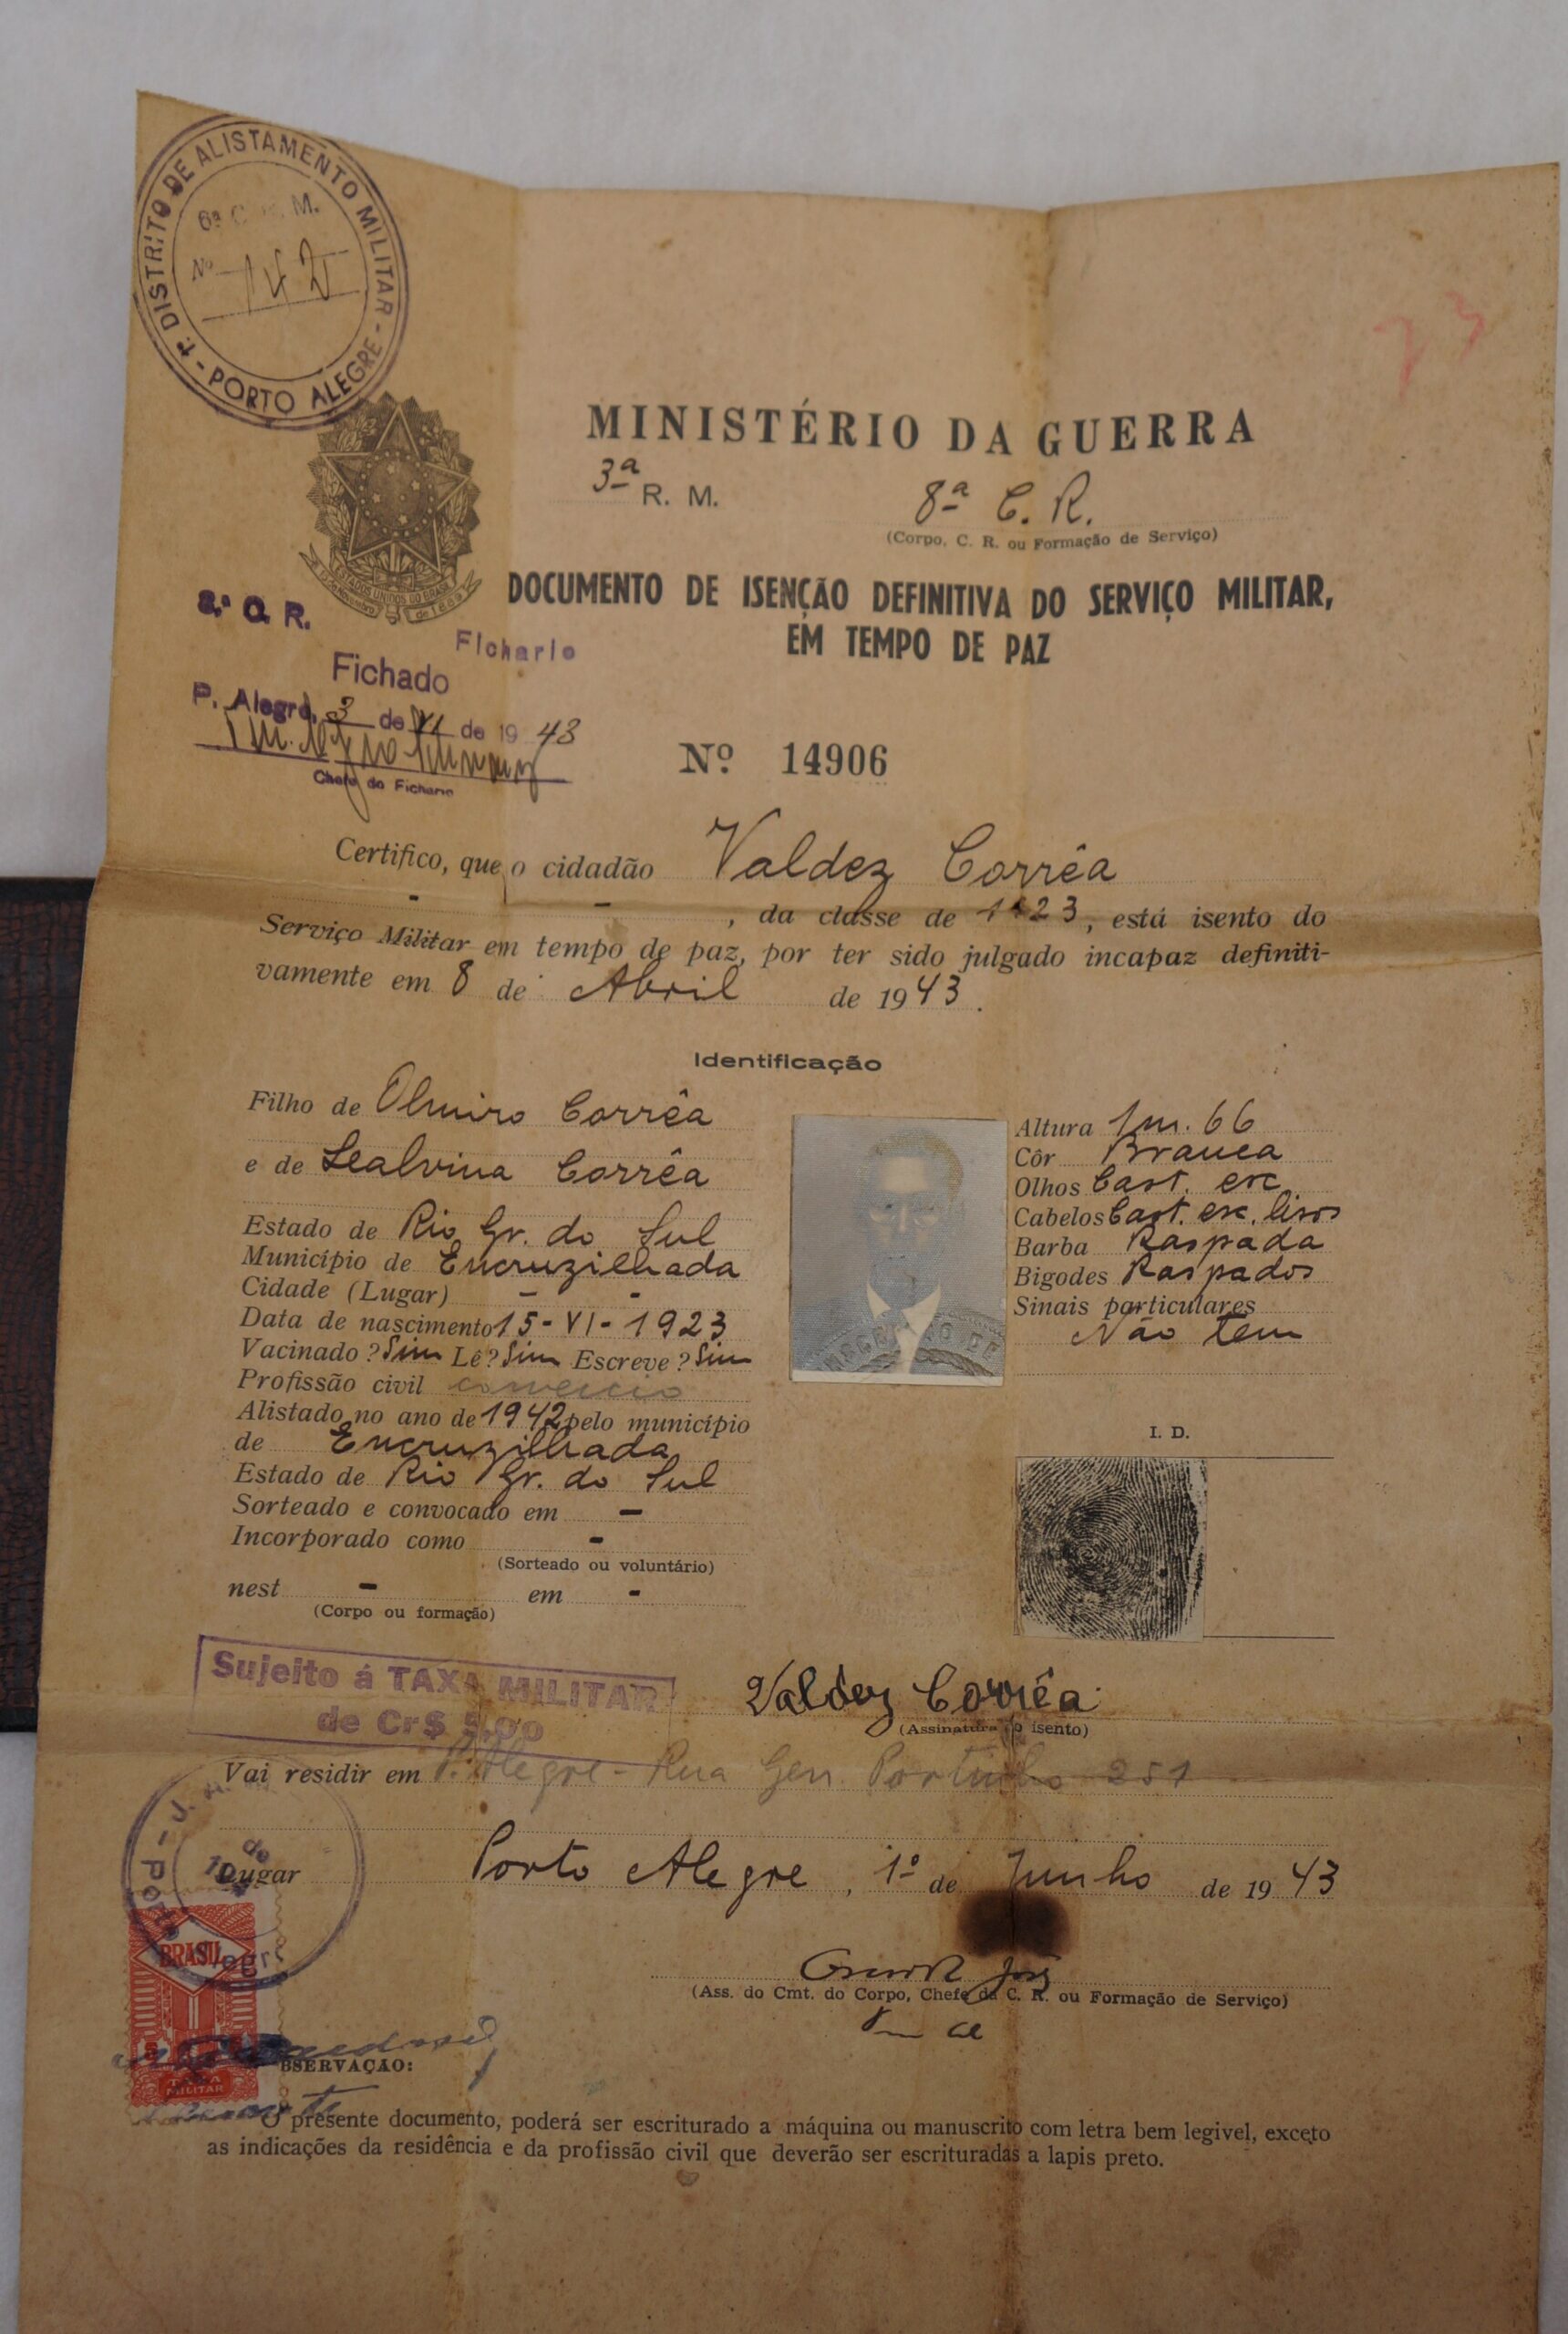 1º DISTRITO DE ALISTAMENTO MILITAR - PORTO ALEGRE -
6ª C. M.
Nº 142
73
ESTADOS UNIDOS DO BRASIL
15 de Novembro de 1889
MINISTÉRIO DA GUERRA
3ª R. M.
8ª C. R.
(Corpo, C. R. ou Formação de Serviço)
DOCUMENTO DE ISENÇÃO DEFINITIVA DO SERVIÇO MILITAR,
EM TEMPO DE PAZ
8.ª C. R.
Fichario
Fichado
P. Alegre, 3 de VI de 19 43
Chefe do Fichario
Nº 14906
Certifico, que o cidadão Valdez Corrêa
- - , da classe de 1923, está isento do
Serviço Militar em tempo de paz, por ter sido julgado incapaz definiti-
vamente em 8 de Abril de 1943.
Identificação
Filho de Olmiro Corrêa
e de Lealvina Corrêa
Estado de Rio Gr. do Sul
Município de Encruzilhada
Cidade (Lugar) - -
Data de nascimento 15-VI-1923
Vacinado? Sim Lê? Sim Escreve? Sim
Profissão civil comercio
Alistado no ano de 1942 pelo município
de Encruzilhada
Estado de Rio Gr. do Sul
Sorteado e convocado em -
Incorporado como -
(Sorteado ou voluntário)
nest - em -
(Corpo ou formação)
Altura 1m.66
Côr Branca
Olhos Cast. esc.
Cabelos Cast. esc. lisos
Barba Raspada
Bigodes Raspados
Sinais particulares
Não tem
I. D.
Sujeito á TAXA MILITAR
de Cr$ 5,00
Valdez Corrêa
(Assinatura do isento)
Vai residir em P. Alegre - Rua Gen. Portinho 251
Lugar
do
Porto Alegre
Porto Alegre, 1º de Junho de 1943
(Ass. do Cmt. do Corpo, Chefe da C. R. ou Formação de Serviço)
BRASIL
TAXA
MILITAR
BSERVAÇAO:
O presente documento, poderá ser escriturado a máquina ou manuscrito com letra bem legivel, exceto
as indicações da residência e da profissão civil que deverão ser escrituradas a lapis preto.